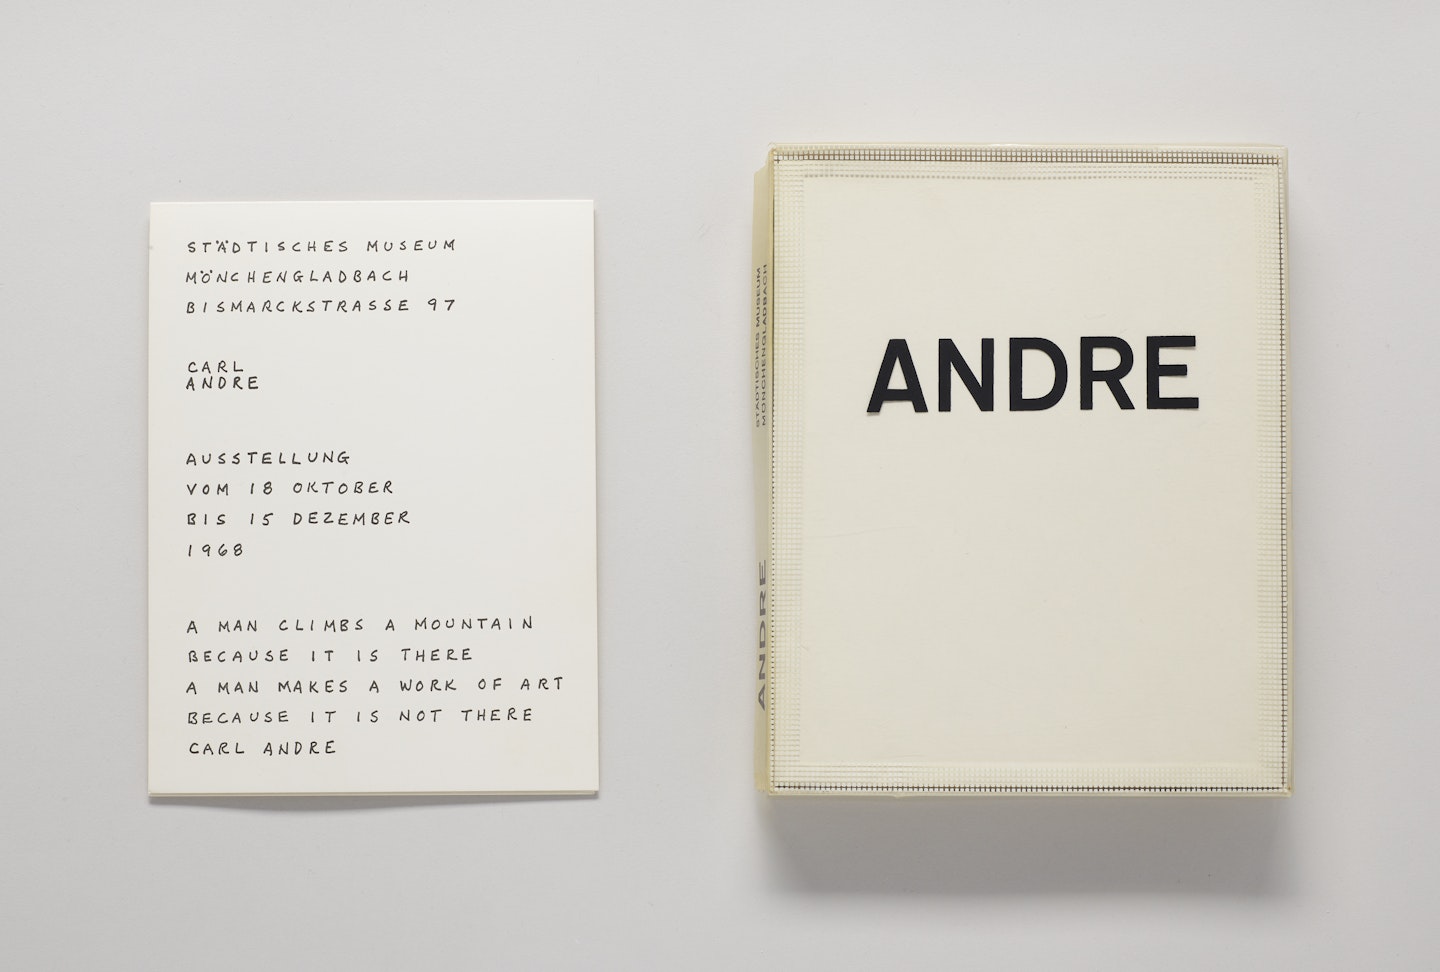 STÄDTISCHES MUSEUM
MÖNCHENGLADBACH
BISMARCKSTRASSE 97
CARL
ANDRE
AUSSTELLUNG
VOM 18 OKTOBER
BIS 15 DEZEMBER
1968
A MAN CLIMBS A MOUNTAIN
BECAUSE IT IS THERE
A MAN MAKES A WORK OF ART
BECAUSE IT IS NOT THERE
CARL ANDRE
STÄDTISCHES MUSEUM
MÖNCHENGLADBACH
ANDRE
ANDRE